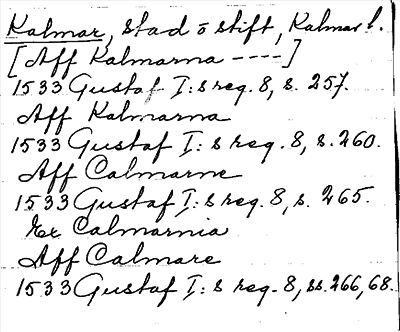 Kalmar, stad o stift, Kalmar l.
[Aff Kalmarna ----]
1533 Gustaf I:s reg. 8, s. 257.
Aff Kalmarna
1533 Gustaf I:s reg. 8, s. 260.
Aff Calmarne
1533 Gustaf I:s reg. 8, s. 265.
Ex Calmarnia
Aff Calmare
1533 Gustaf I:s reg. 8, ss. 266, 68.